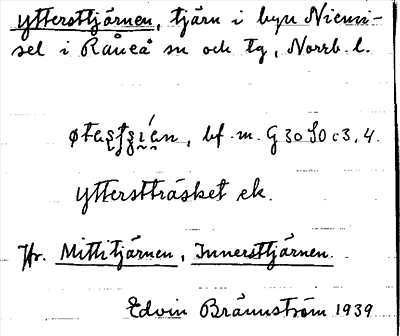 Yttersttjärnen, tjärn i byn Niemi-
sel i Råneå sn och tg, Norrb. l.
bf. m. G 30 S0 c 3, 4.
Ytterstträsket ek.
Jfr. Mittitjärnen, Innersttjärnen.
Edvin Brännström 1939